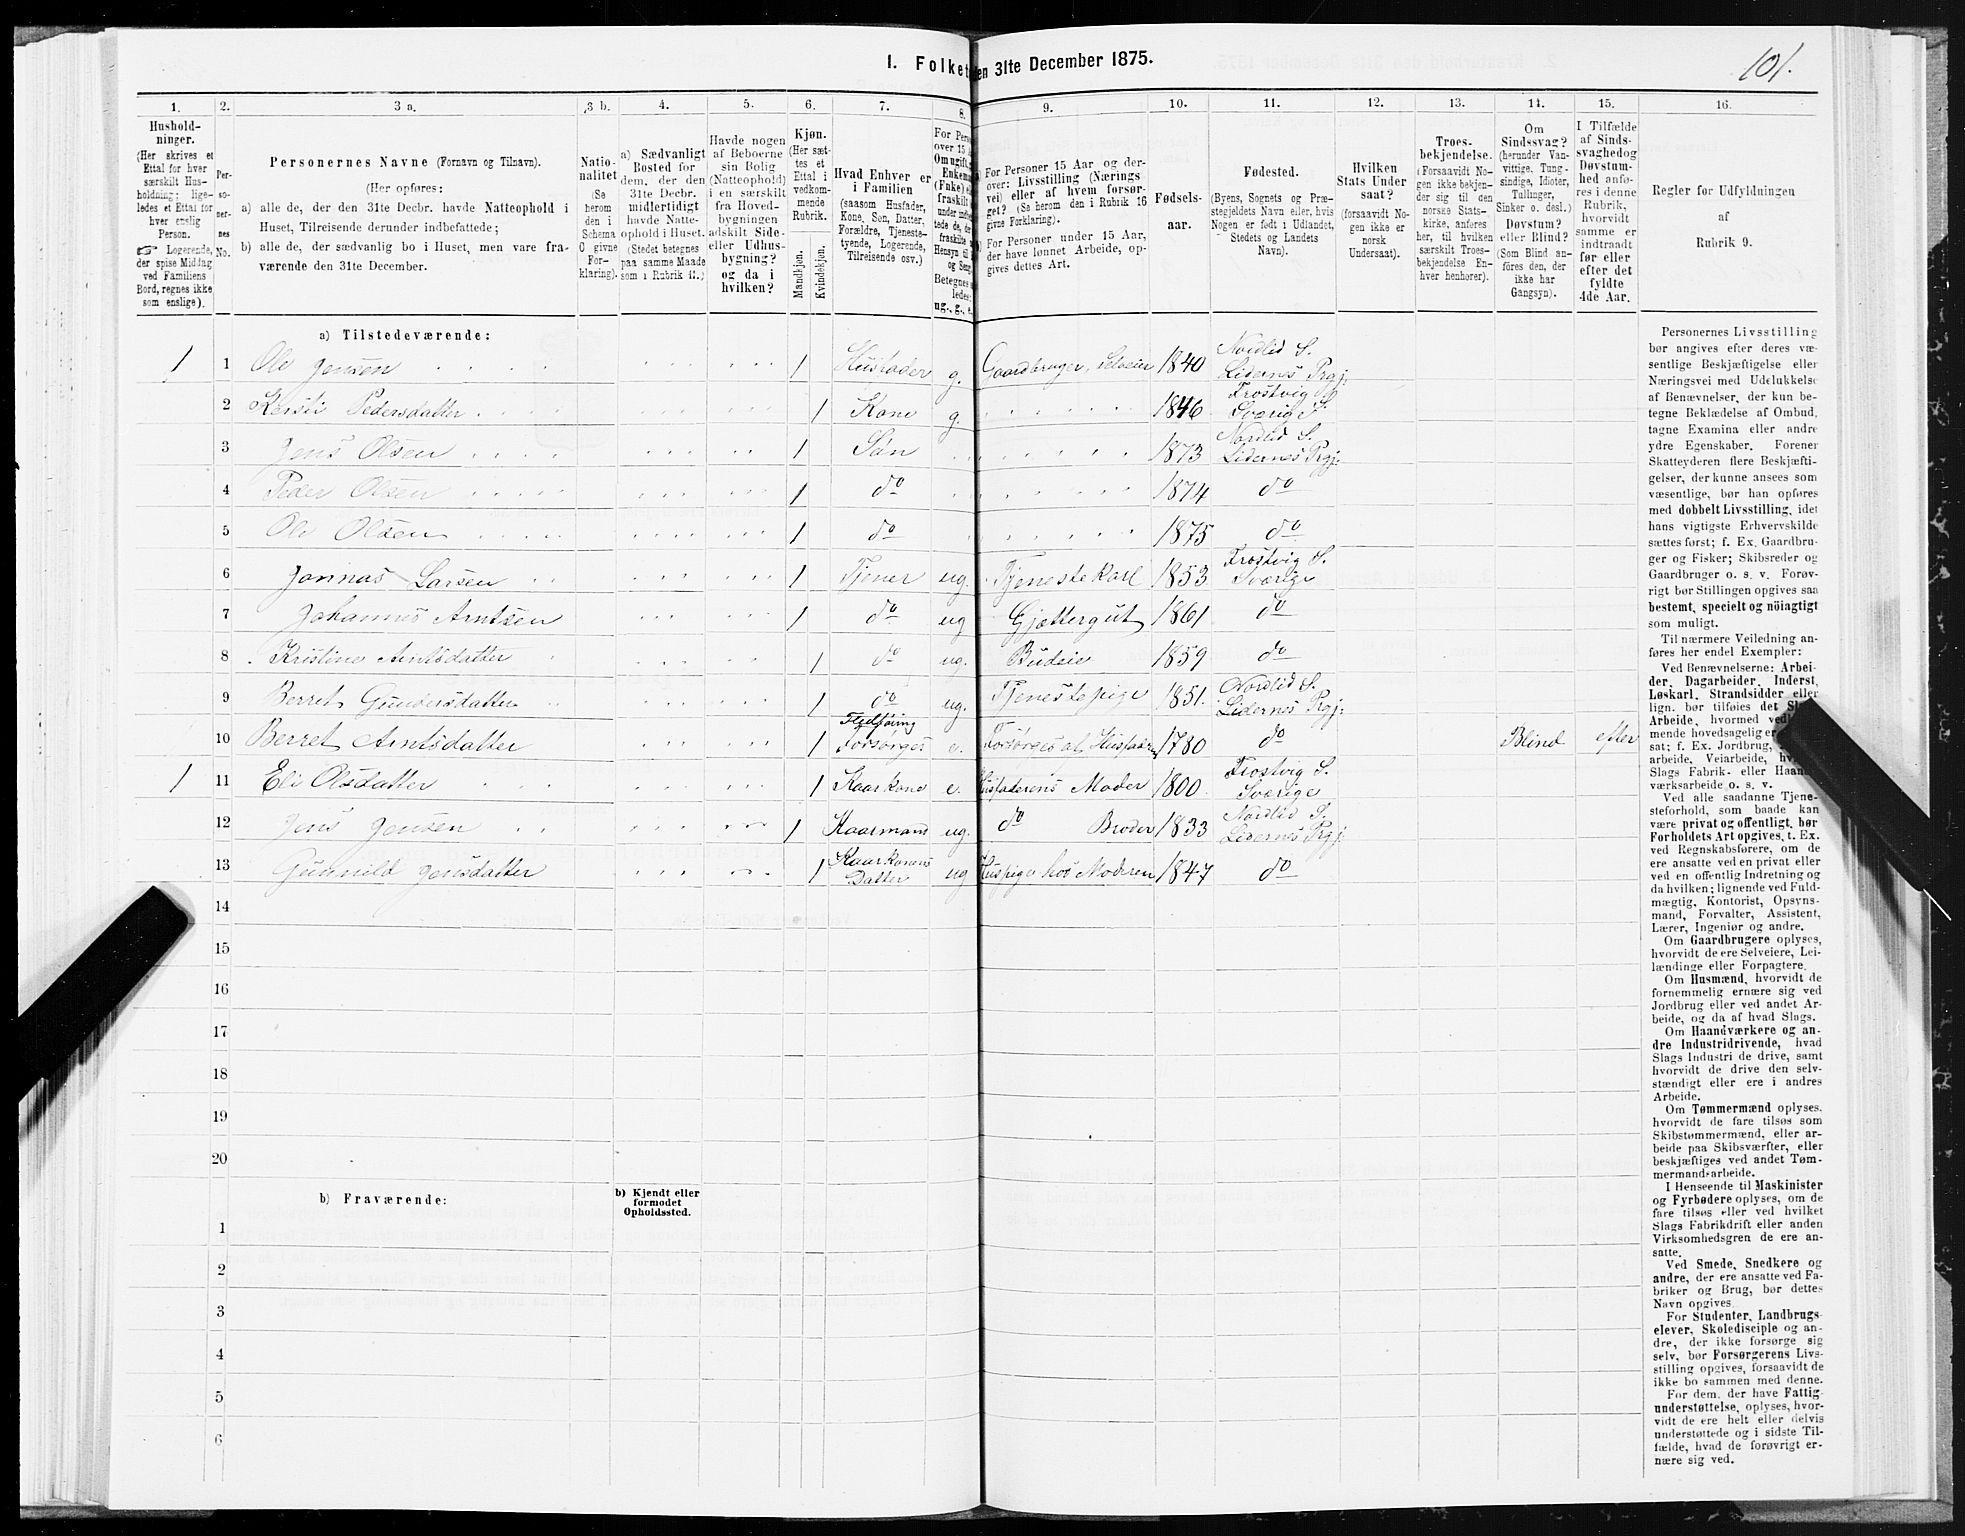 101.
1. Folket
en 31te December 1875.
1. 2. 3 a. 3 b. 4. 5. 6. 7. 8. 9. 10. 11. 12. 13. 14. 15. 16.
Hushold-
ninger.
(Her skrives et
Ettal for hver
særskilt Hus-
holdning; lige-
ledes et Ettal for
hver enslig
Person.
☞ Logerende,
der spise Middag
ved Familiens
Bord, regnes ikke
som enslige).
Per-
so-
ner-
nes
No.
Personernes Navne (Fornavn og Tilnavn).
(Her opføres:
a) alle de, der den 31te Decbr. havde Natteophold i
Huset, Tilreisende derunder indbefattede;
b) alle de, der sædvanlig bo i Huset, men vare fra-
værende den 31te December.
Natio-
nalitet
(Se
herom
den i
Schema
O givne
For-
klaring).
a) Sædvanligt
Bosted for
dem, der den
31te Decbr.
midlertidigt
havde Natte-
ophold i Huset.
(Stedet betegnes
paa samme Maade
som i Rubrik 11.)
Havde nogen
af Beboerne
sin Bolig
(Natteophold)
i en særskilt
fra Hoved-
bygningen
adskilt Side-
eller Udhus-
bygning?
og da i
hvilken?
Kjøn.
(Her sæt-
tes et
Ettal i
vedkom-
mende
Rubrik.
Mandkjøn.
Kvindekjøn.
Hvad Enhver er
i Familien
(saasom Husfader,
Kone, Søn, Datter,
Forældre, Tjeneste-
tyende, Logerende,
Tilreisende osv.)
For Perso
over 15 A
Omugift, g
Enkema
(Fnke) el
fraskilt
ug., g., e.
For Personer 15 Aar og der-
over: Livsstilling (Nærings
vei) eller af hvem forsør-
get? (Se herom den i Rubrik 16
givne Forklaring).
For Personer under 15 Aar,
der have lønnet Arbeide, op-
gives dettes Art.
Fødsels-
aar.
Fødested.
(Byens, Sognets og Præ-
stegjeldets Navn eller, hvis
Nogen er født i Udlandet,
Stedets og Landets
Navn).
Hvilken
Stats Under
saat?
(forsaavidt No-
gen ikke er
norsk
Undersaat).
Troes-
bekjendelse.
(Forsaavidt No-
gen ikke bekjen-
der sig til den
norske Stats-
kirke, anføres
her, til hvilken
særskilt Troes-
bekjendelse En-
hver henhører).
Om
Sindssvag?
(herunder Van-
vittige, Tung-
sindige, Idioter,
Tullinger,
Sinker o. desl.)
Døvstum?
eller Blind?
(Som Blind an-
føres den, der
ikke har
Gangsyn).
I Tilfælde
af Sinds-
svaghed og
Døvstum-
hed anfø-
res i denne
Rubrik,
hvorvidt
samme er
indtraadt
før eller
efter det
fyldte
4de Aar.
Regler for Udfyldningen
af
Rubrik 9.
a) Tilstedeværende:
1 1 Ole Jensen 1 Husfader g. Gaardbruger, Selveier 1840 Nordlid S. Lidernes Prgj:
2 Kersti Pedersdatter 1 Kone g. 1846 Frostvig S. Sværig
3 Jens Olsen 1 Søn 1873 Nordlid S. Lidernes Prgj:
4 Peder Olsen 1 do 1874 do
5 Ole Olsen 1 do 1875 do
6 Jonnas Larsen 1 Tjener ug. Tjenestekarl 1853 Frostvig S. Sværige
7 Johannes Arntsen 1 do ug Gjættergut 1861 do
8 Kristine Arntsdatter 1 do ug. Budeie 1859 do
9 Berret Gundersdatter 1 do ug. Tjenestepige 1851. Nordlid S. Lidernes Prgj:
10 Berret Arntsdatter 1 Forsørges e. Forsørges af Husfaderen 1780 do Blind efter
1 11 Eli Olsdatter 1 Kaarkone e. Husfaderens Moder 1800 Frostvig S. Sværige
12 Jens Jensen 1 Kaarmand ug. do Broder 1833 Nordlid S. Lidernes Prgj:
13 Gunnild Jensdatter 1 Kaarkonens Datter ug Huspige hos Moderen 1847 do
14
15
16
17
18
19
20
b) Fraværende:
b) Kjendt eller
formodet
Opholdssted.
1
2
3
4
5
6
Personernes Livsstilling
bør angives efter deres væ-
sentlige Beskjæftigelse eller
Næringsvei med Udelukkelse
af Benævnelser, der kun be-
tegne Beklædelse af Ombud,
tagne Examina eller andre
ydre Egenskaber. Forener
Skatteyderen flere Beskjæfti-
gelser, der kunne ansees som
væsentlige, bør han opføres
med dobbelt Livsstilling, idet
hans vigtigste Erhvervskilde
sættes først; f. Ex. Gaardbru-
ger og Fisker; Skibsreder og
Gaardbruger o. s. v. Forøv-
rigt bør Stillingen opgives saa
bestemt, specielt og nöiagtigt
som muligt.
Til nærmere Veiledning an-
føres her endel Exempler:
Ved Benævnelserne: Arbei-
der, Dagarbeider, Inderst,
Løskarl, Strandsidder eller
lign. bør tilføies det Slags
Arbeide, hvormed ved
mende hovedsagelig er
sat; f. Ex. Jordbrug,
arbeide, Veiarbeide,
Slags Fabrik- eller Haand
værksarbeide o. s. v.
Ved alle saadanne Tjene-
steforhold, som baade kan
være privat og offentligt, bør
Forholdets Art opgives, t. Ex.
ved Regnskabsførere, om de
ere ansatte ved en privat eller
ved en offentlig Indretning og
da hvilken; lignende ved Fuld-
mægtig, Kontorist, Opsyns-
mand, Forvalter, Assistent,
Lærer, Ingeniør og andre.
Om Gaardbrugere oplyses,
hvorvidt de ere Selveiere, Lei-
lændinge eller Forpagtere.
Om Husmænd, hvorvidt de
fornemmelig ernære sig ved
Jordbrug eller ved andet Ar-
beide, og da af hvad Slags.
Om Haandværkere og an-
dre Industridrivende, hvad
Slags Industri de drive, samt
hvorvidt de drive den selv-
stændigt eller ere i andres
Arbeide.
Om Tømmermænd oplyses,
hvorvidt de fare tilsøs som
Skibstømmermænd, eller ar-
beide paa Skibsværfter, eller
beskjæftiges ved andet Tøm-
mermandsarbeide.
I Henseende til Maskinister
og Fyrbødere oplyses, om de
fare tilsøs eller ved hvilket
Slags Fabrikdrift eller anden
Virksomhedsgren de ere an-
satte.
Ved Smede, Snedkere og
andre, der ere ansatte ved Fa-
briker og Brug, bør dettes
Navn opgives.
For Studenter, Landbrugs-
elever, Skoledisciple og an-
dre, der ikke forsørge sig
selv, bør Forsørgerens Livs-
stilling opgives, forsaavidt de
ikke bo sammen med denne.
For dem, der have Fattig-
understøttelse, oplyses, hvor-
vidt de ere helt eller delvis
understøttede og i sidste Til-
fælde, hvad de forøvrigt er-
nære sig ved.